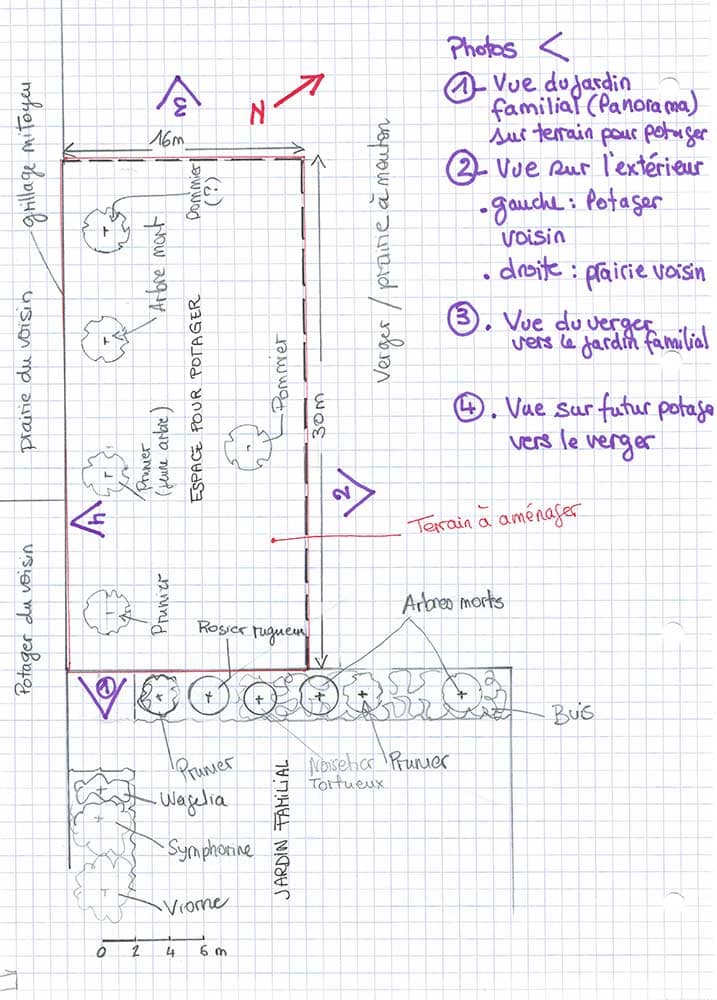 Photos <
① - Vue du jardin
familial (Panorama)
sur terrain pour potager
② - Vue sur l'extérieur
. gauche : Potager
voisin
. droite : prairie voisin
③ . Vue du verger
vers le jardin familial
④ . Vue sur futur potage
vers le verger
3
N
16m
grillage mitoyen
Pommier
(?)
Arbre mort
Verger / prairie à mouton
prairie du voisin
ESPACE POUR POTAGER
Pommier
30m
Prunier
(jeune arbre)
2
4
Terrain à aménager
Potager du voisin
Prunier
Rosier rugueux
Arbres morts
1
Buis
Prunier
Noisetier
Tortueux
Prunier
Wagelia
JARDIN FAMILIAL
Symphorine
Viorne
0 2 4 6 m